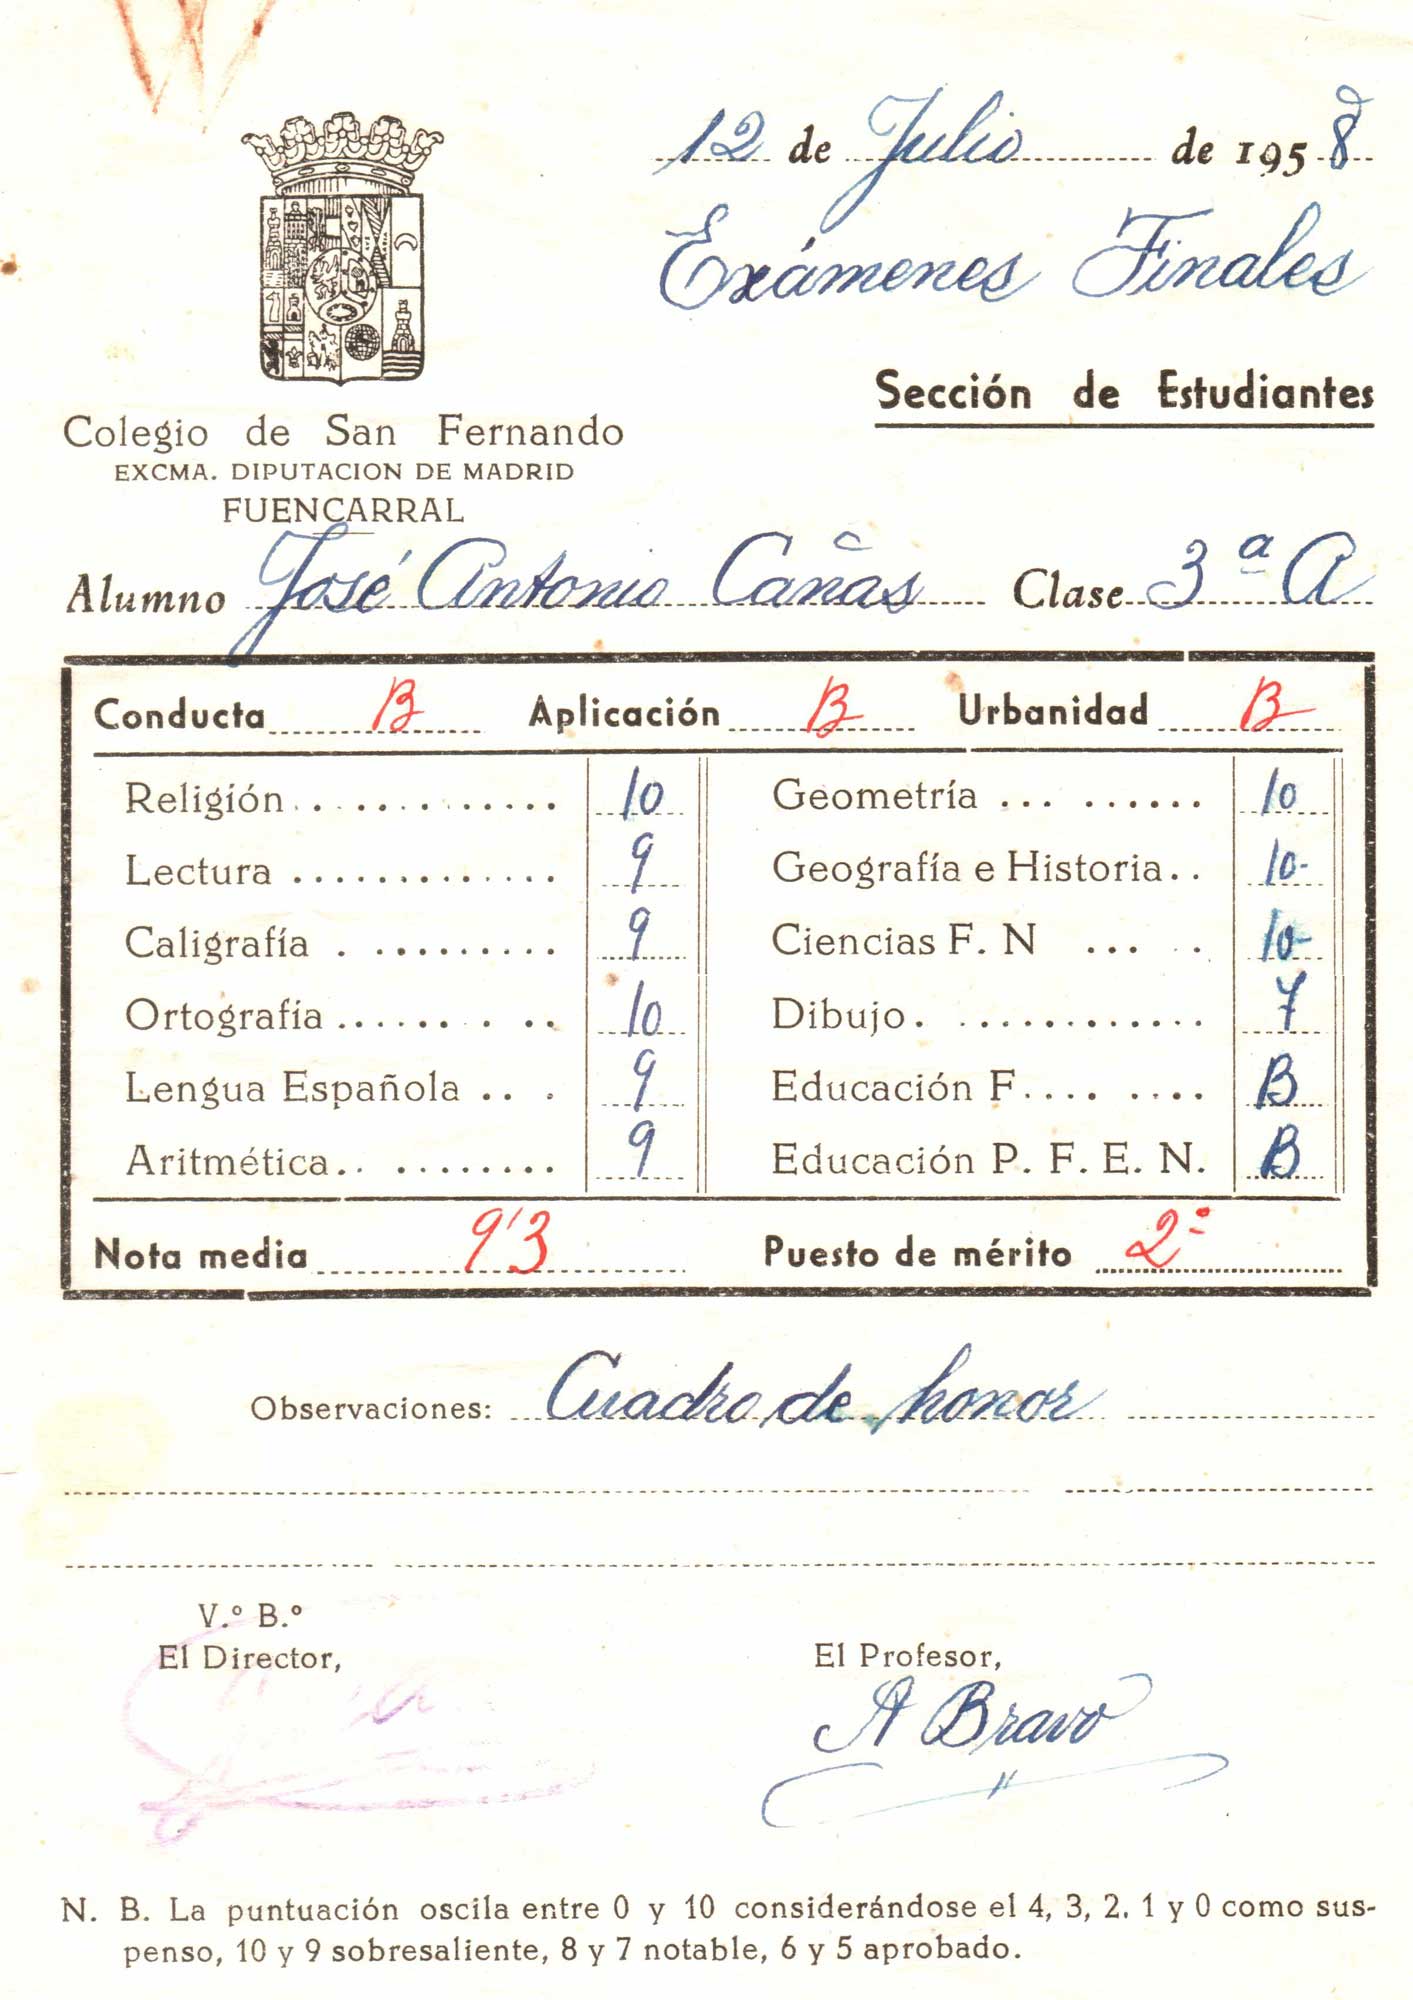 12 de Julio de 1958
Exámenes Finales
Sección de Estudiantes
Colegio de San Fernando
EXCMA. DIPUTACION DE MADRID
FUENCARRAL
Alumno José Antonio Cañas Clase 3ª A
Conducta B Aplicación B Urbanidad B
Religión 10 Geometría 10
Lectura 9 Geografía e Historia 10-
Caligrafía 9 Ciencias F. N 10-
Ortografía 10 Dibujo 7
Lengua Española 9 Educación F. B
Aritmética 9 Educación P. F. E. N. B
Nota media 9'3 Puesto de mérito 2º
Observaciones: Cuadro de honor
V.º B.º
El Director, El Profesor,
A Bravo
N. B. La puntuación oscila entre 0 y 10 considerándose el 4, 3, 2, 1 y 0 como sus-
penso, 10 y 9 sobresaliente, 8 y 7 notable, 6 y 5 aprobado.